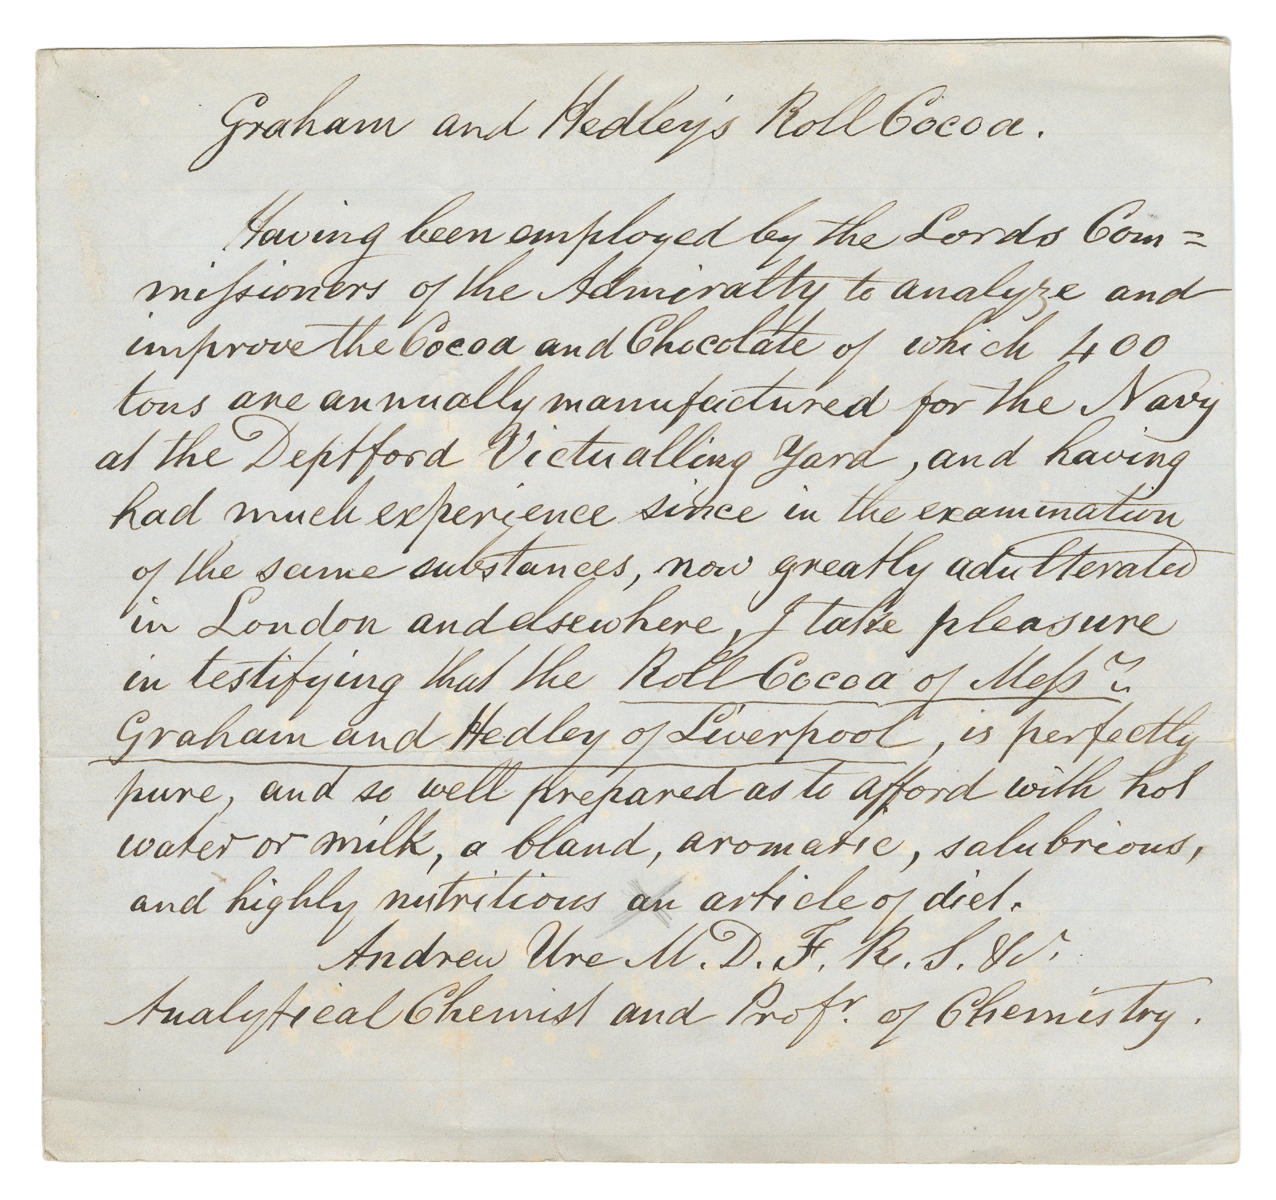 Graham and Hedley's Roll Cocoa.
Having been employed by the Lords Com=
missioners of the Admiralty to analyze and
improve the Cocoa and Chocolate of which 400
tons are annually manufactured for the Navy
at the Deptford Victualling Yard, and having
had much experience since in the examination
of the same substances, now greatly adulterated
in London and elsewhere, I take pleasure
in testifying that the Roll Cocoa of Messrs.
Graham and Hedley of Liverpool, is perfectly
pure, and so well prepared as to afford with hot
water or milk, a bland, aromatic, salubrious,
and highly nutritious an article of diet.
Andrew Ure M.D. F.R.S. &c.
Analytical Chemist and Profr. of Chemistry.